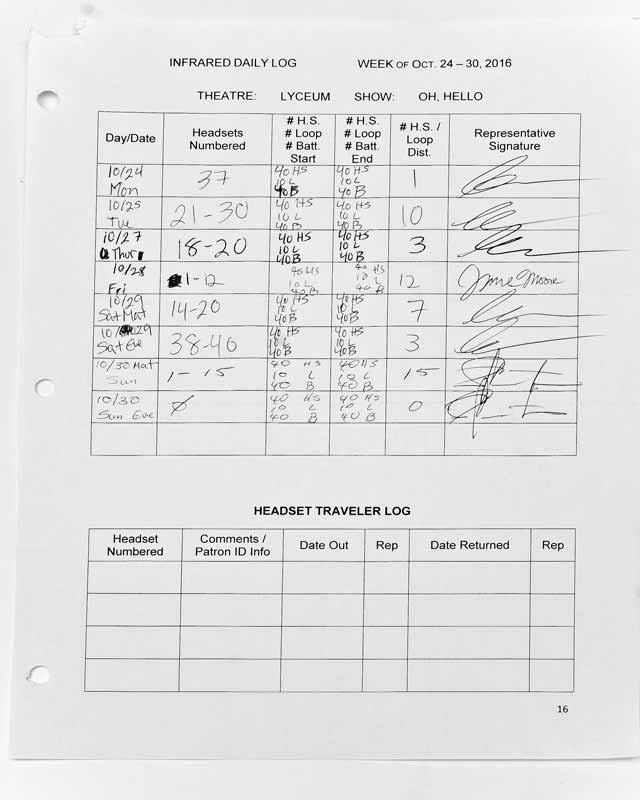 INFRARED DAILY LOG WEEK OF OCT. 24 – 30, 2016
THEATRE: LYCEUM SHOW: OH, HELLO
Day/Date Headsets Numbered # H.S. # Loop # Batt. Start # H.S. # Loop # Batt. End # H.S. / Loop Dist. Representative Signature
10/24 Mon 37 40 HS 10 L 40 B 40 HS 10 L 40 B 1
10/25 Tue 21-30 40 HS 10 L 40 B 40 HS 10 L 40 B 10
10/27 Thur 18-20 40 HS 10 L 40 B 40 HS 10 L 40 B 3
10/28 Fri 1-12 40 HS 10 L 40 B 40 HS 10 L 40 B 12 Moore
10/29 Sat Mat 14-20 40 HS 10 L 40 B 40 HS 10 L 40 B 7
10/29 Sat Eve 38-40 40 HS 10 L 40 B 40 HS 10 L 40 B 3
10/30 Mat Sun 1-15 40 HS 10 L 40 B 40 HS 10 L 40 B 15
10/30 Sun Eve Ø 40 HS 10 L 40 B 40 HS 10 L 40 B 0
HEADSET TRAVELER LOG
Headset Numbered Comments / Patron ID Info Date Out Rep Date Returned Rep
16